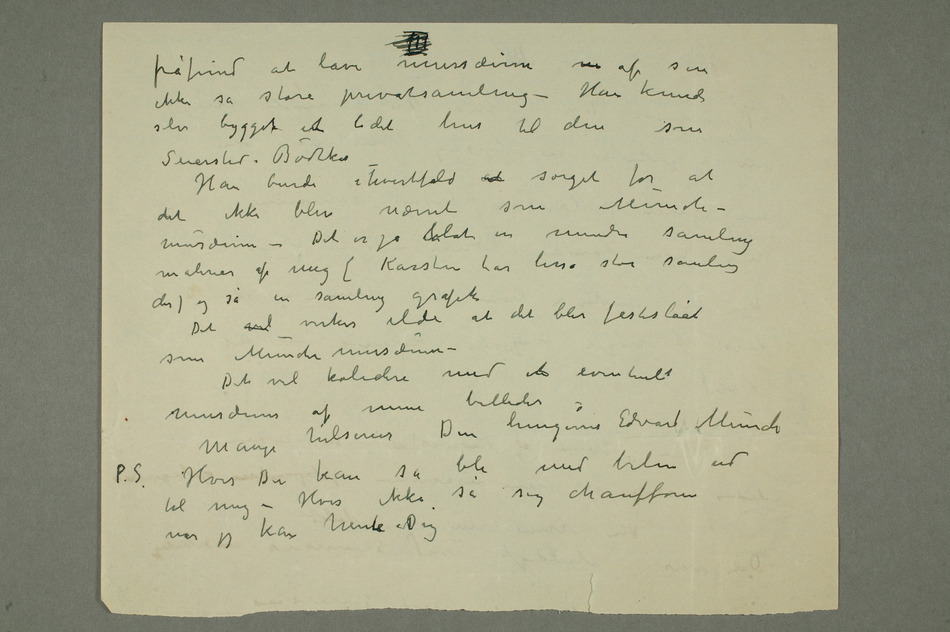 påfund at lave musæum af sin
ikke så store privatsamling – Han kunde
selv bygget et lidet hus til den som
Suersted-Bødtker
Han burde ihvertfald sørget for at
det ikke blev nævnt som Munch-
musæum – Det er jo blot en mindre samling
malerier af mig ( Karsten har lisså stor samling
der) og så en samling grafik
Det virker ilde at det blir festslåt
som Munch musæum –
Det vil kolidere med et eventuelt
musæum af mine billeder
Mange hilsener Din hengivne Edvard Munch
P.S. Hvis Du kan så bli med bilen ud
til mig – Hvis ikke så sig chaufføren
når jeg kan hente Dig